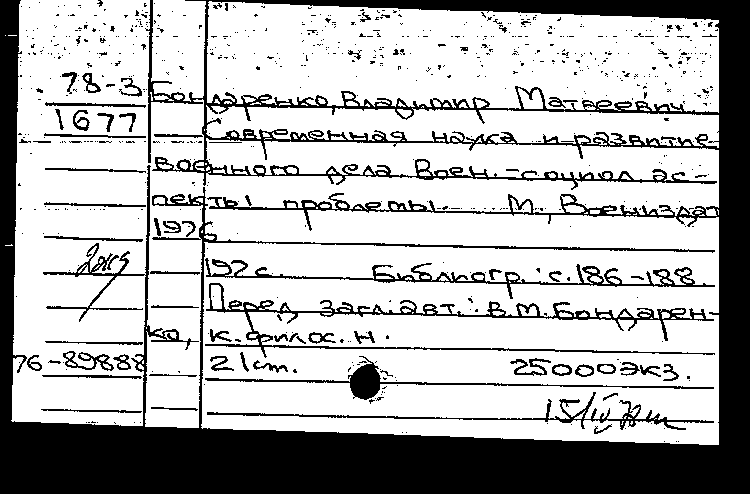 78-3 Бондаренко, Владимир Матвеевич
1677 Современная наука и развитие
военного дела. Воен.-социол. ас-
пекты проблемы. М., Воениздат
1976.
2экз
192 с. Библиогр.: с. 186-188.
Перед загл. авт.: В.М. Бондарен-
ко, к. филос. н.
76-89888 21 cm. 25000 экз.